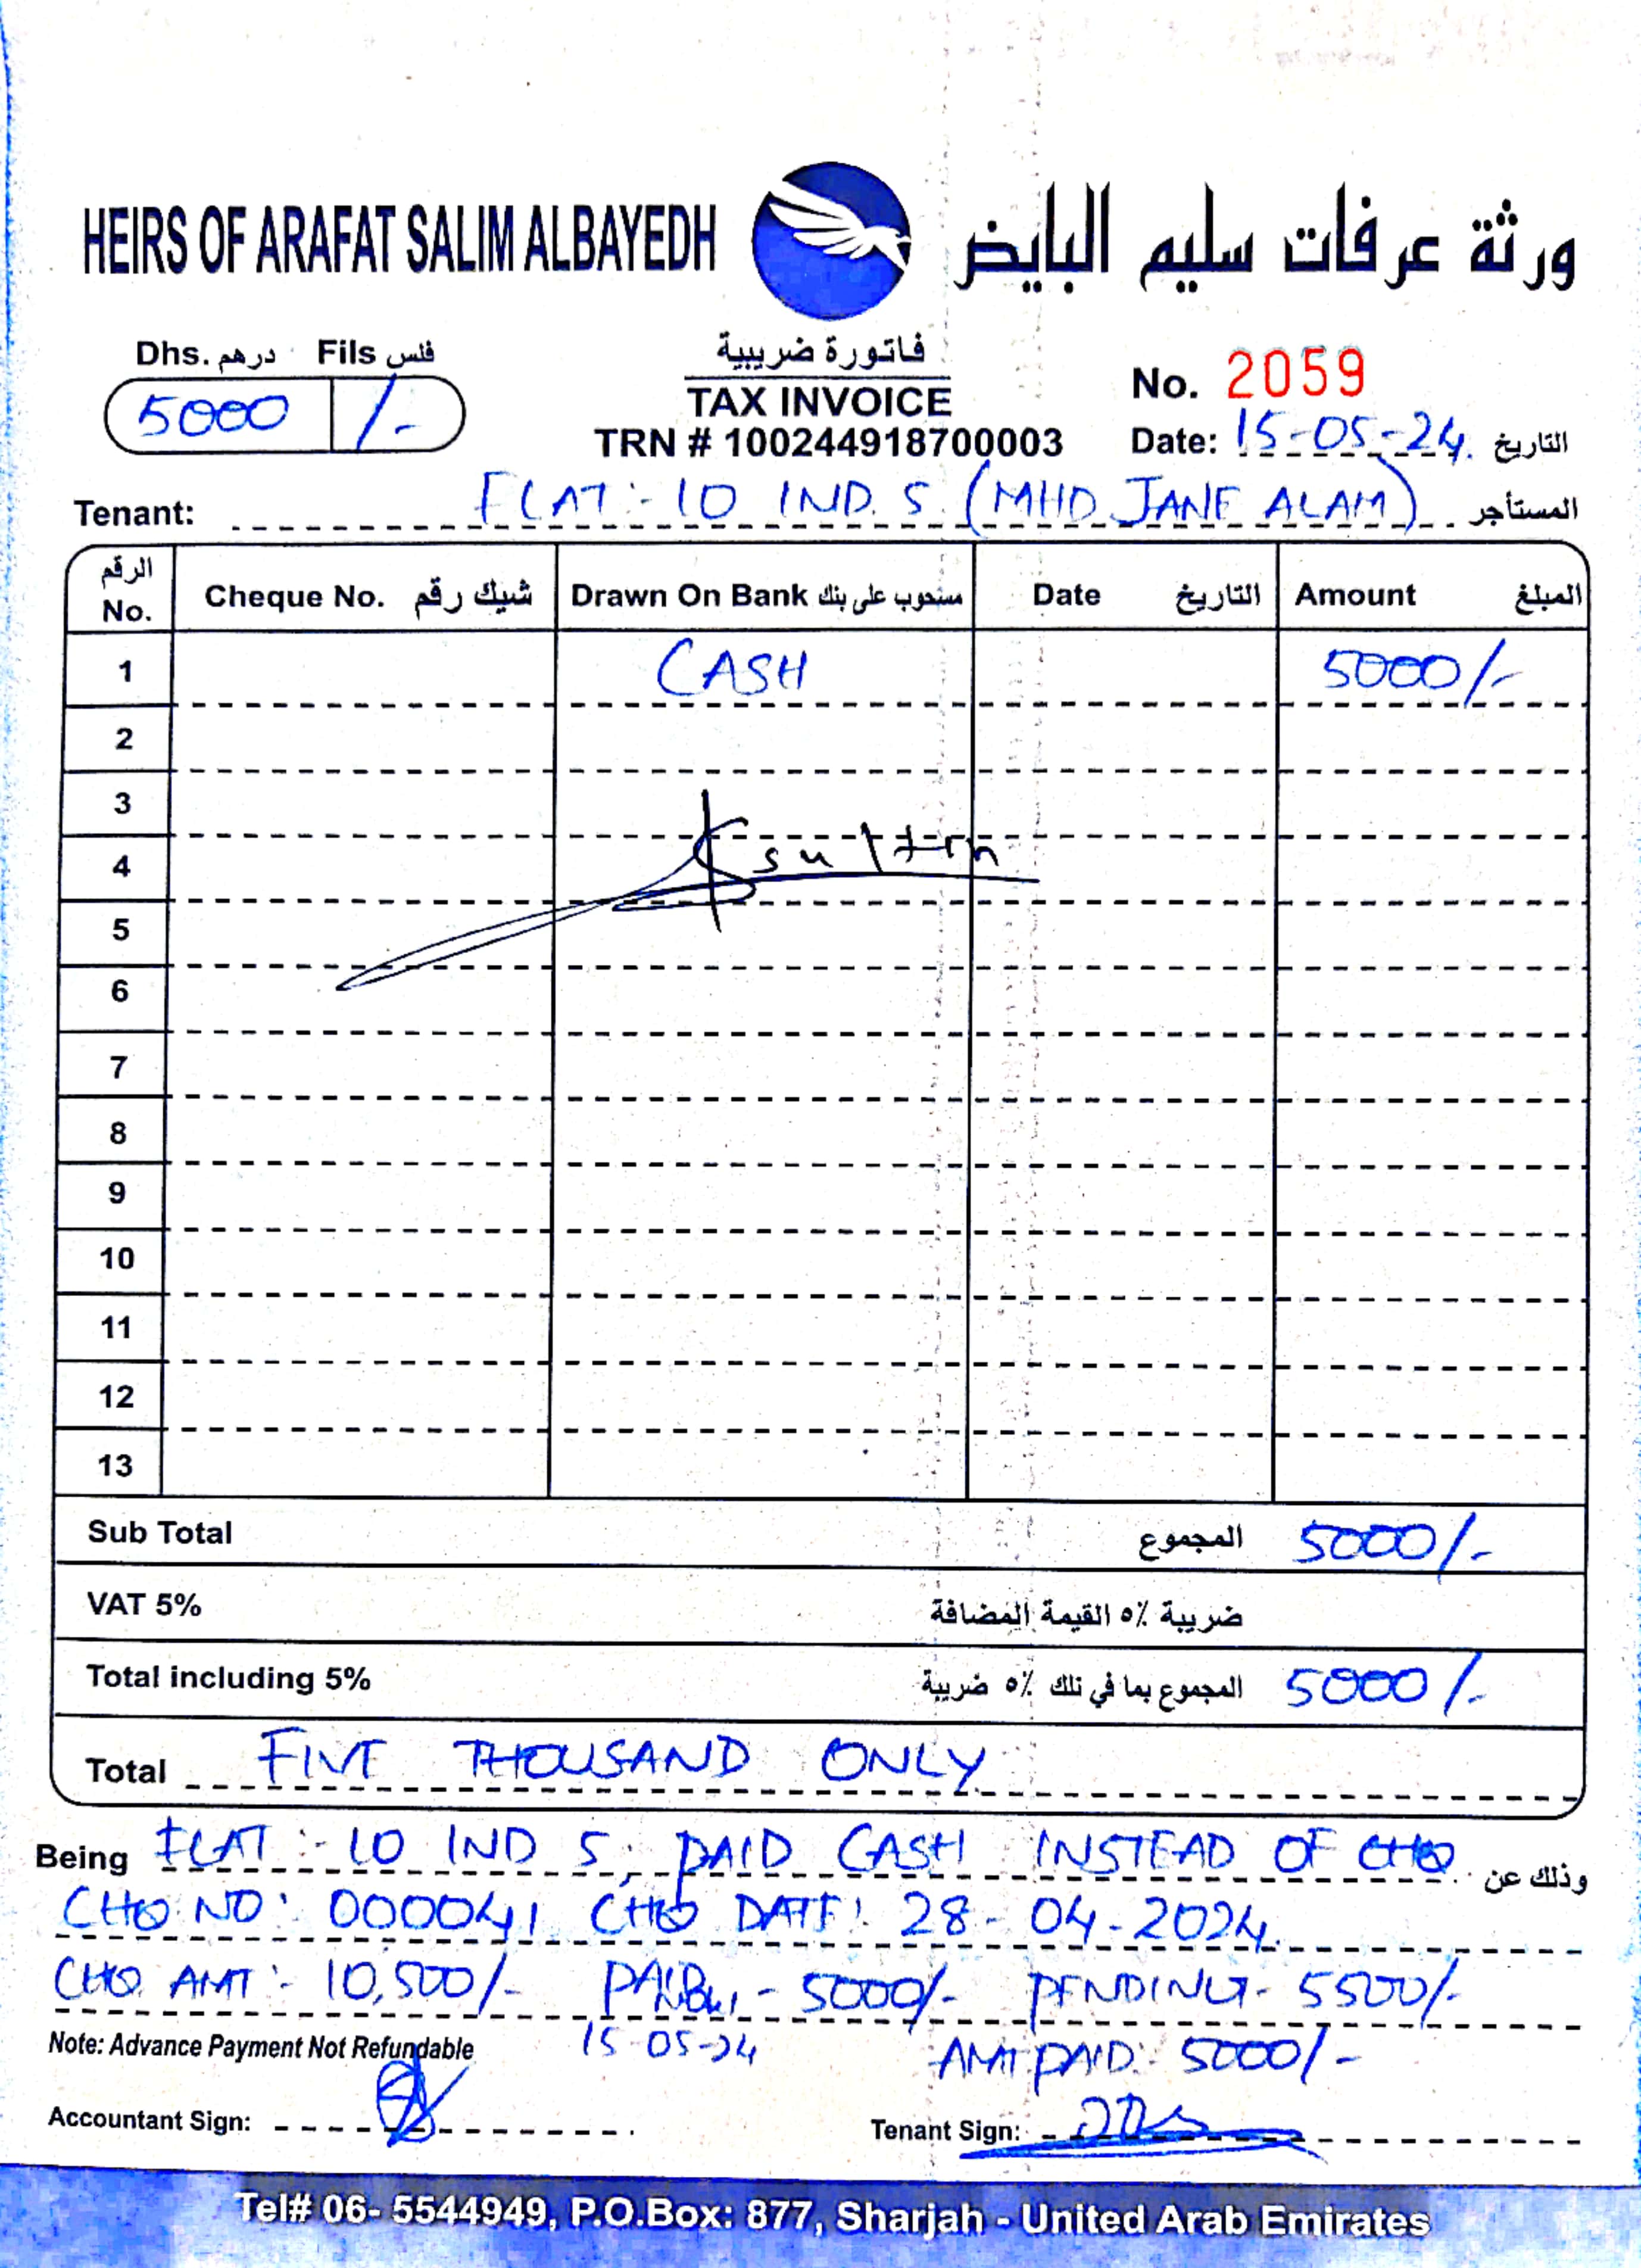 HEIRS OF ARAFAT SALIM ALBAYEDH ورثة عرفات سليم البايض
Dhs. درهم Fils فلس
5000 /-
فاتورة ضريبية
TAX INVOICE
TRN # 100244918700003
No. 2059
Date: 15-05-24. التاريخ
Tenant: FLAT:- 10 IND. 5 (MHD JANE ALAM) المستأجر
الرقم No. Cheque No. شيك رقم Drawn On Bank مسحوب على بنك Date التاريخ Amount المبلغ
1 CASH 5000/-
2
3
4
5
6
7
8
9
10
11
12
13
Sub Total المجموع 5000/-
VAT 5% ضريبة ٥٪ القيمة المضافة
Total including 5% المجموع بما في تلك ٥٪ ضريبة 5000/-
Total FIVE THOUSAND ONLY
Being FLAT:- 10 IND 5, PAID CASH INSTEAD OF CHQ وذلك عن
CHQ NO: 000041 CHQ DATE: 28-04-2024.
CHQ AMT:- 10,500/- PAID:- 5000/- PENDING- 5500/-
Note: Advance Payment Not Refundable 15-05-24 AMT PAID:- 5000/-
Accountant Sign: Tenant Sign:
Tel# 06- 5544949, P.O.Box: 877, Sharjah - United Arab Emirates